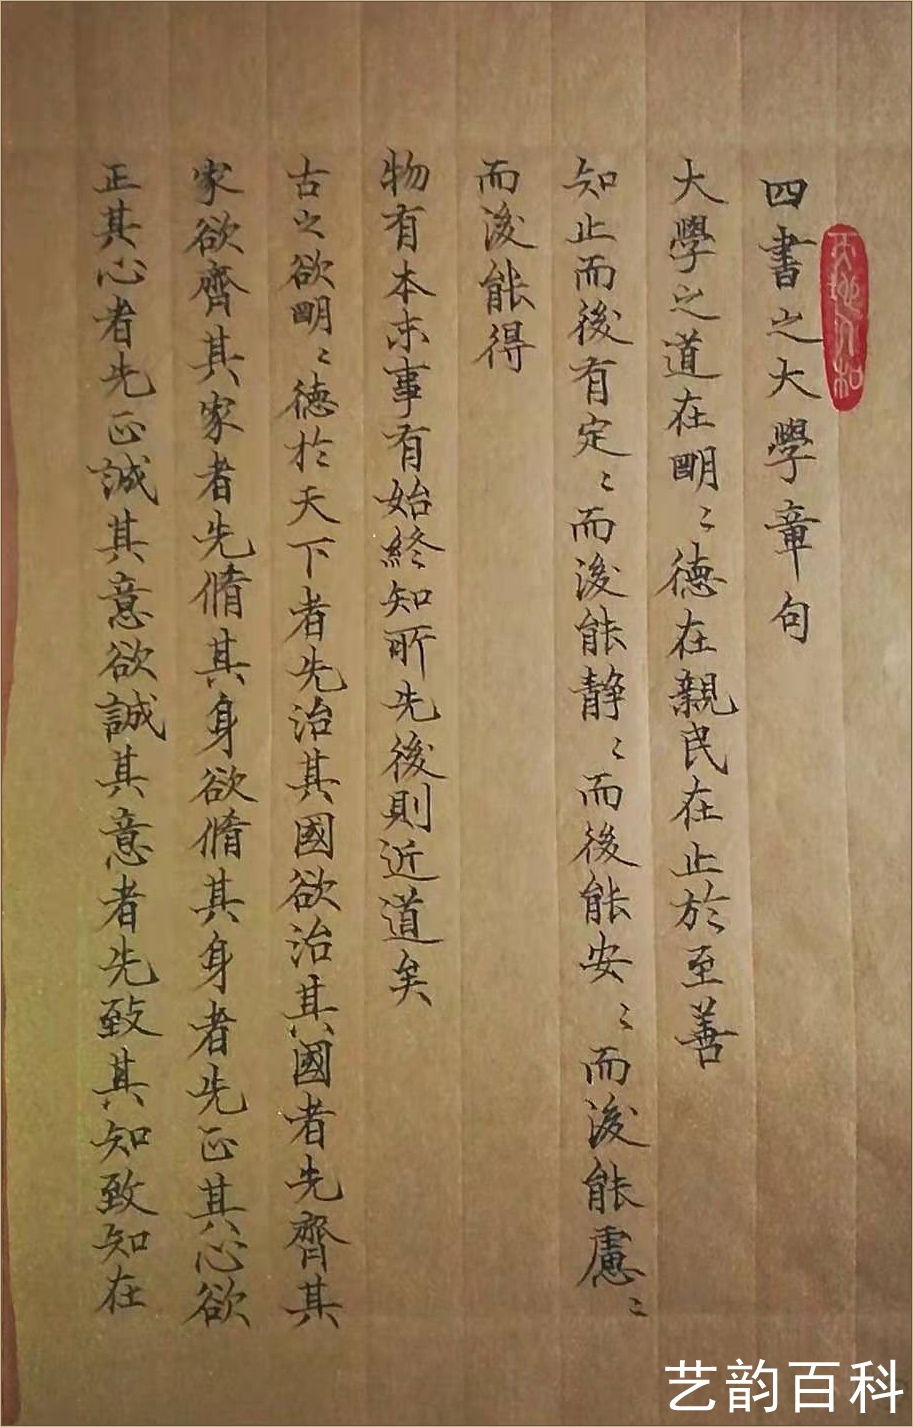 天地人和
四書之大學章句
大學之道在明〻德在親民在止於至善
知止而後有定〻而後能静〻而後能安〻而後能慮〻
而後能得
物有本末事有始終知所先後則近道矣
古之欲明〻德於天下者先治其國欲治其國者先齊其
家欲齊其家者先脩其身欲脩其身者先正其心欲
正其心者先正誠其意欲誠其意者先致其知致知在
艺韵百科